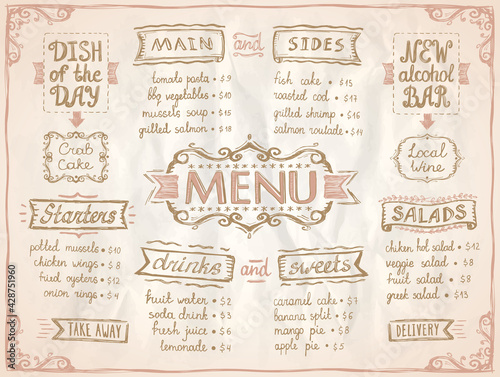 DISH
of the
DAY
Crab
Cake
MAIN and SIDES
tomato pasta • $9
bbq vegetables • $10
mussels soup • $15
grilled salmon • $18
fish cake • $15
roasted cod • $17
grilled shrimp • $16
salmon roulade • $14
NEW
alcohol
BAR
Local
Wine
MENU
Starters
potted mussels • $10
chicken wings • $8
fried oysters • $12
onion rings • $4
TAKE AWAY
drinks and sweets
fruit water • $2
soda drink • $3
fresh juice • $6
lemonade • $4
caramel cake • $7
banana split • $6
mango pie • $8
apple pie • $5
SALADS
chiken hot salad • $12
veggie salad • $8
fruit salad • $8
greek salad • $13
DELIVERY
Adobe Stock
#428751960